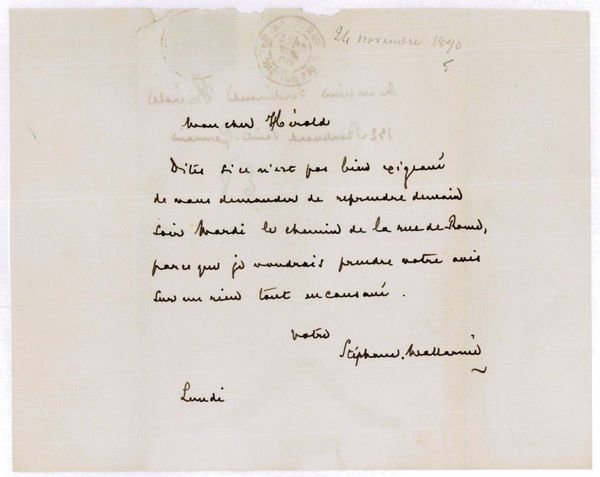 24 novembre 1890
5
Mon cher Hérold
Dites si ce n'est pas bien exigeant
de vous demander de reprendre demain
soir Mardi le chemin de la rue de Rome,
parce que je voudrais prendre votre avis
sur un rien tout en causant.
Votre
Stéphane Mallarmé
Lundi